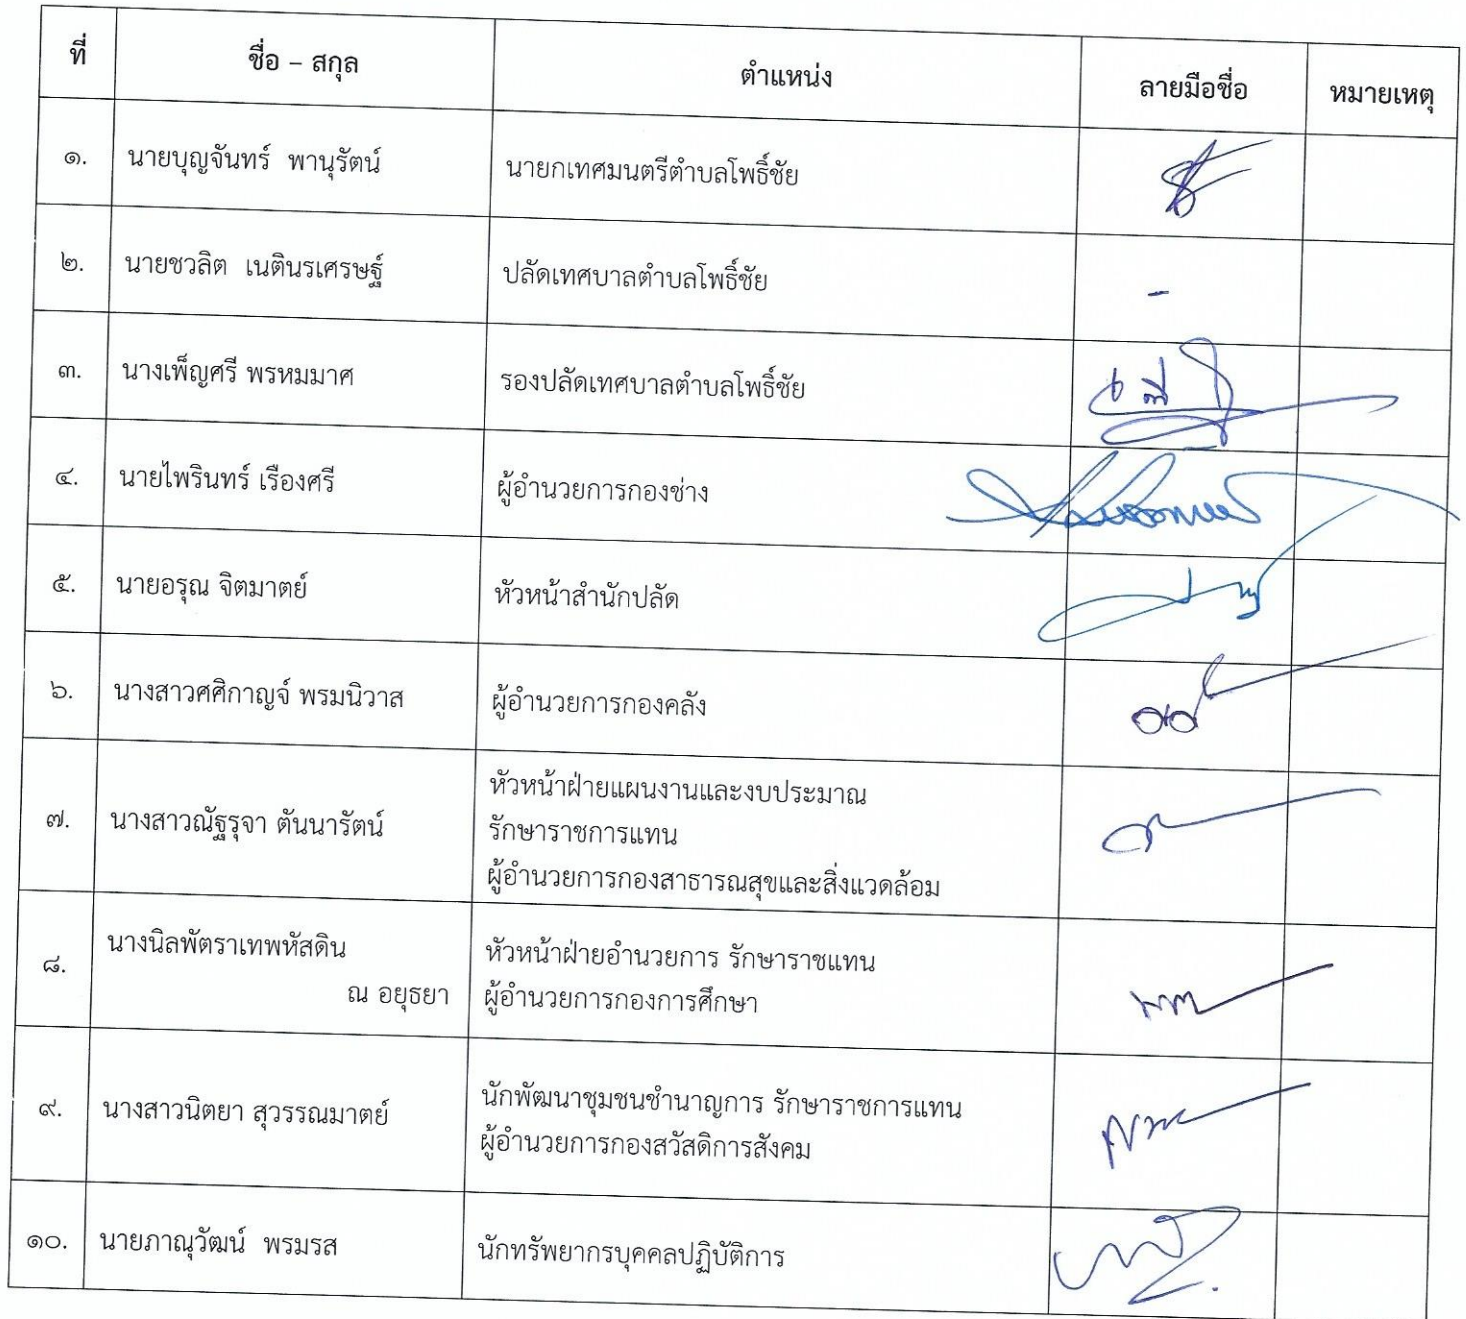 ที่ ชื่อ – สกุล ตำแหน่ง ลายมือชื่อ หมายเหตุ
๑. นายบุญจันทร์ พานุรัตน์ นายกเทศมนตรีตำบลโพธิ์ชัย
๒. นายชวลิต เนตินรเศรษฐ์ ปลัดเทศบาลตำบลโพธิ์ชัย -
๓. นางเพ็ญศรี พรหมมาศ รองปลัดเทศบาลตำบลโพธิ์ชัย
๔. นายไพรินทร์ เรืองศรี ผู้อำนวยการกองช่าง
๕. นายอรุณ จิตมาตย์ หัวหน้าสำนักปลัด
๖. นางสาวศศิกาญจ์ พรมนิวาส ผู้อำนวยการกองคลัง
๗. นางสาวณัฐรุจา ตันนารัตน์ หัวหน้าฝ่ายแผนงานและงบประมาณ
รักษาราชการแทน
ผู้อำนวยการกองสาธารณสุขและสิ่งแวดล้อม
๘. นางนิลพัตราเทพหัสดิน หัวหน้าฝ่ายอำนวยการ รักษาราชแทน
ณ อยุธยา ผู้อำนวยการกองการศึกษา
๙. นางสาวนิตยา สุวรรณมาตย์ นักพัฒนาชุมชนชำนาญการ รักษาราชการแทน
ผู้อำนวยการกองสวัสดิการสังคม
๑๐. นายภาณุวัฒน์ พรมรส นักทรัพยากรบุคคลปฏิบัติการ